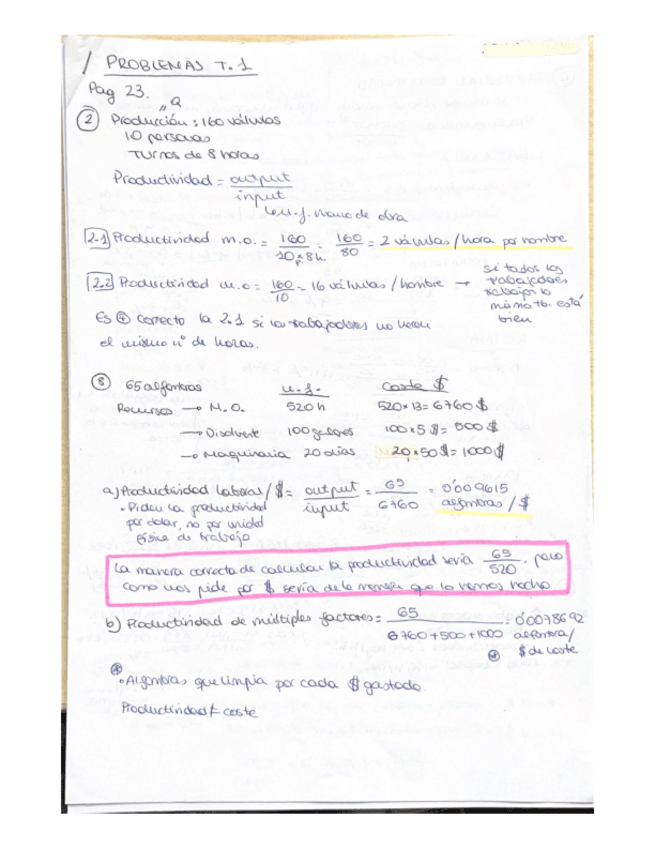 PROBLEMAS T.1
Pag 23.
"Q
② Producción: 160 válvulas
10 personas
Turnos de 8 horas
Productividad = output / input
u.f. mano de obra
2.1 Productividad m.o. = 160 / 10p. x 8h = 160 / 80 = 2 válvulas / hora por hombre
2.2 Productividad m.o = 160 / 10 = 16 válvulas / hombre → si todos los
trabajadores
trabajan lo
mismo tb. está
bien
Es ⊕ correcto la 2.1 si los trabajadores no hacen
el mismo nº de horas.
⑧ 65 alfombras u.f. coste $
Recursos → M.O. 520 h 520x13= 6760 $
→ Disolvente 100 galones 100x5 $= 500 $
→ Maquinaria 20 días 20x50 $= 1000 $
a) Productividad laboral / $ = output / input = 65 / 6760 = 0'009615 alfombras / $
• Piden la productividad
por dolar, no por unidad
física de trabajo
La manera correcta de calcular la productividad sería 65 / 520, pero
como nos pide por $ sería de la manera que lo hemos hecho
b) Productividad de múltiples factores = 65 / 6760+500+1000 = 0'0078692 alfombra/
$ de coste
• Alfombras que limpia por cada $ gastado.
Productividad ≠ coste